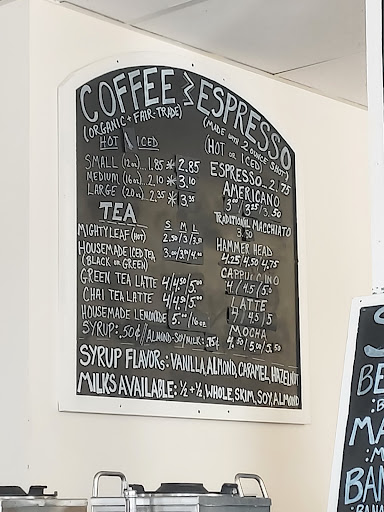 COFFEE
(ORGANIC + FAIR-TRADE)
HOT ICED
SMALL (12oz)..1.85 * 2.85
MEDIUM (16oz)..2.10 * 3.10
LARGE (20oz) 2.35 *
TEA
S M L
MIGHTY LEAF (HOT) 2.50/3/
HOUSEMADE ICED TEA
(BLACK OR GREEN)
GREEN TEA LATTE 4/4.50/5.00
CHAI TEA LATTE 4/4.50/5.00
HOUSEMADE LEMONADE 5.00/16oz
SYRUP: .50¢//ALMOND-SOY MILK:
ESPRESSO
(MADE WITH 2 OUNCE SHOT)
(HOT OR ICED)
ESPRESSO..2.75
AMERICANO
3.00/3.25/3.50
TRADITIONAL MACCHIATO
3.50
HAMMER HEAD
4.25 4.50 4.75
CAPPUCCINO
4/4.5/5.0
LATTE
/4.5/5
MOCHA
4.50/5.00/5.50
SYRUP FLAVORS: VANILLA, ALMOND, CARAMEL, HAZELNUT
MILKS AVAILABLE: ½ + ½, WHOLE, SKIM, SOY, ALMOND
S
BE
:B
MA
:M
BAN
:BANA